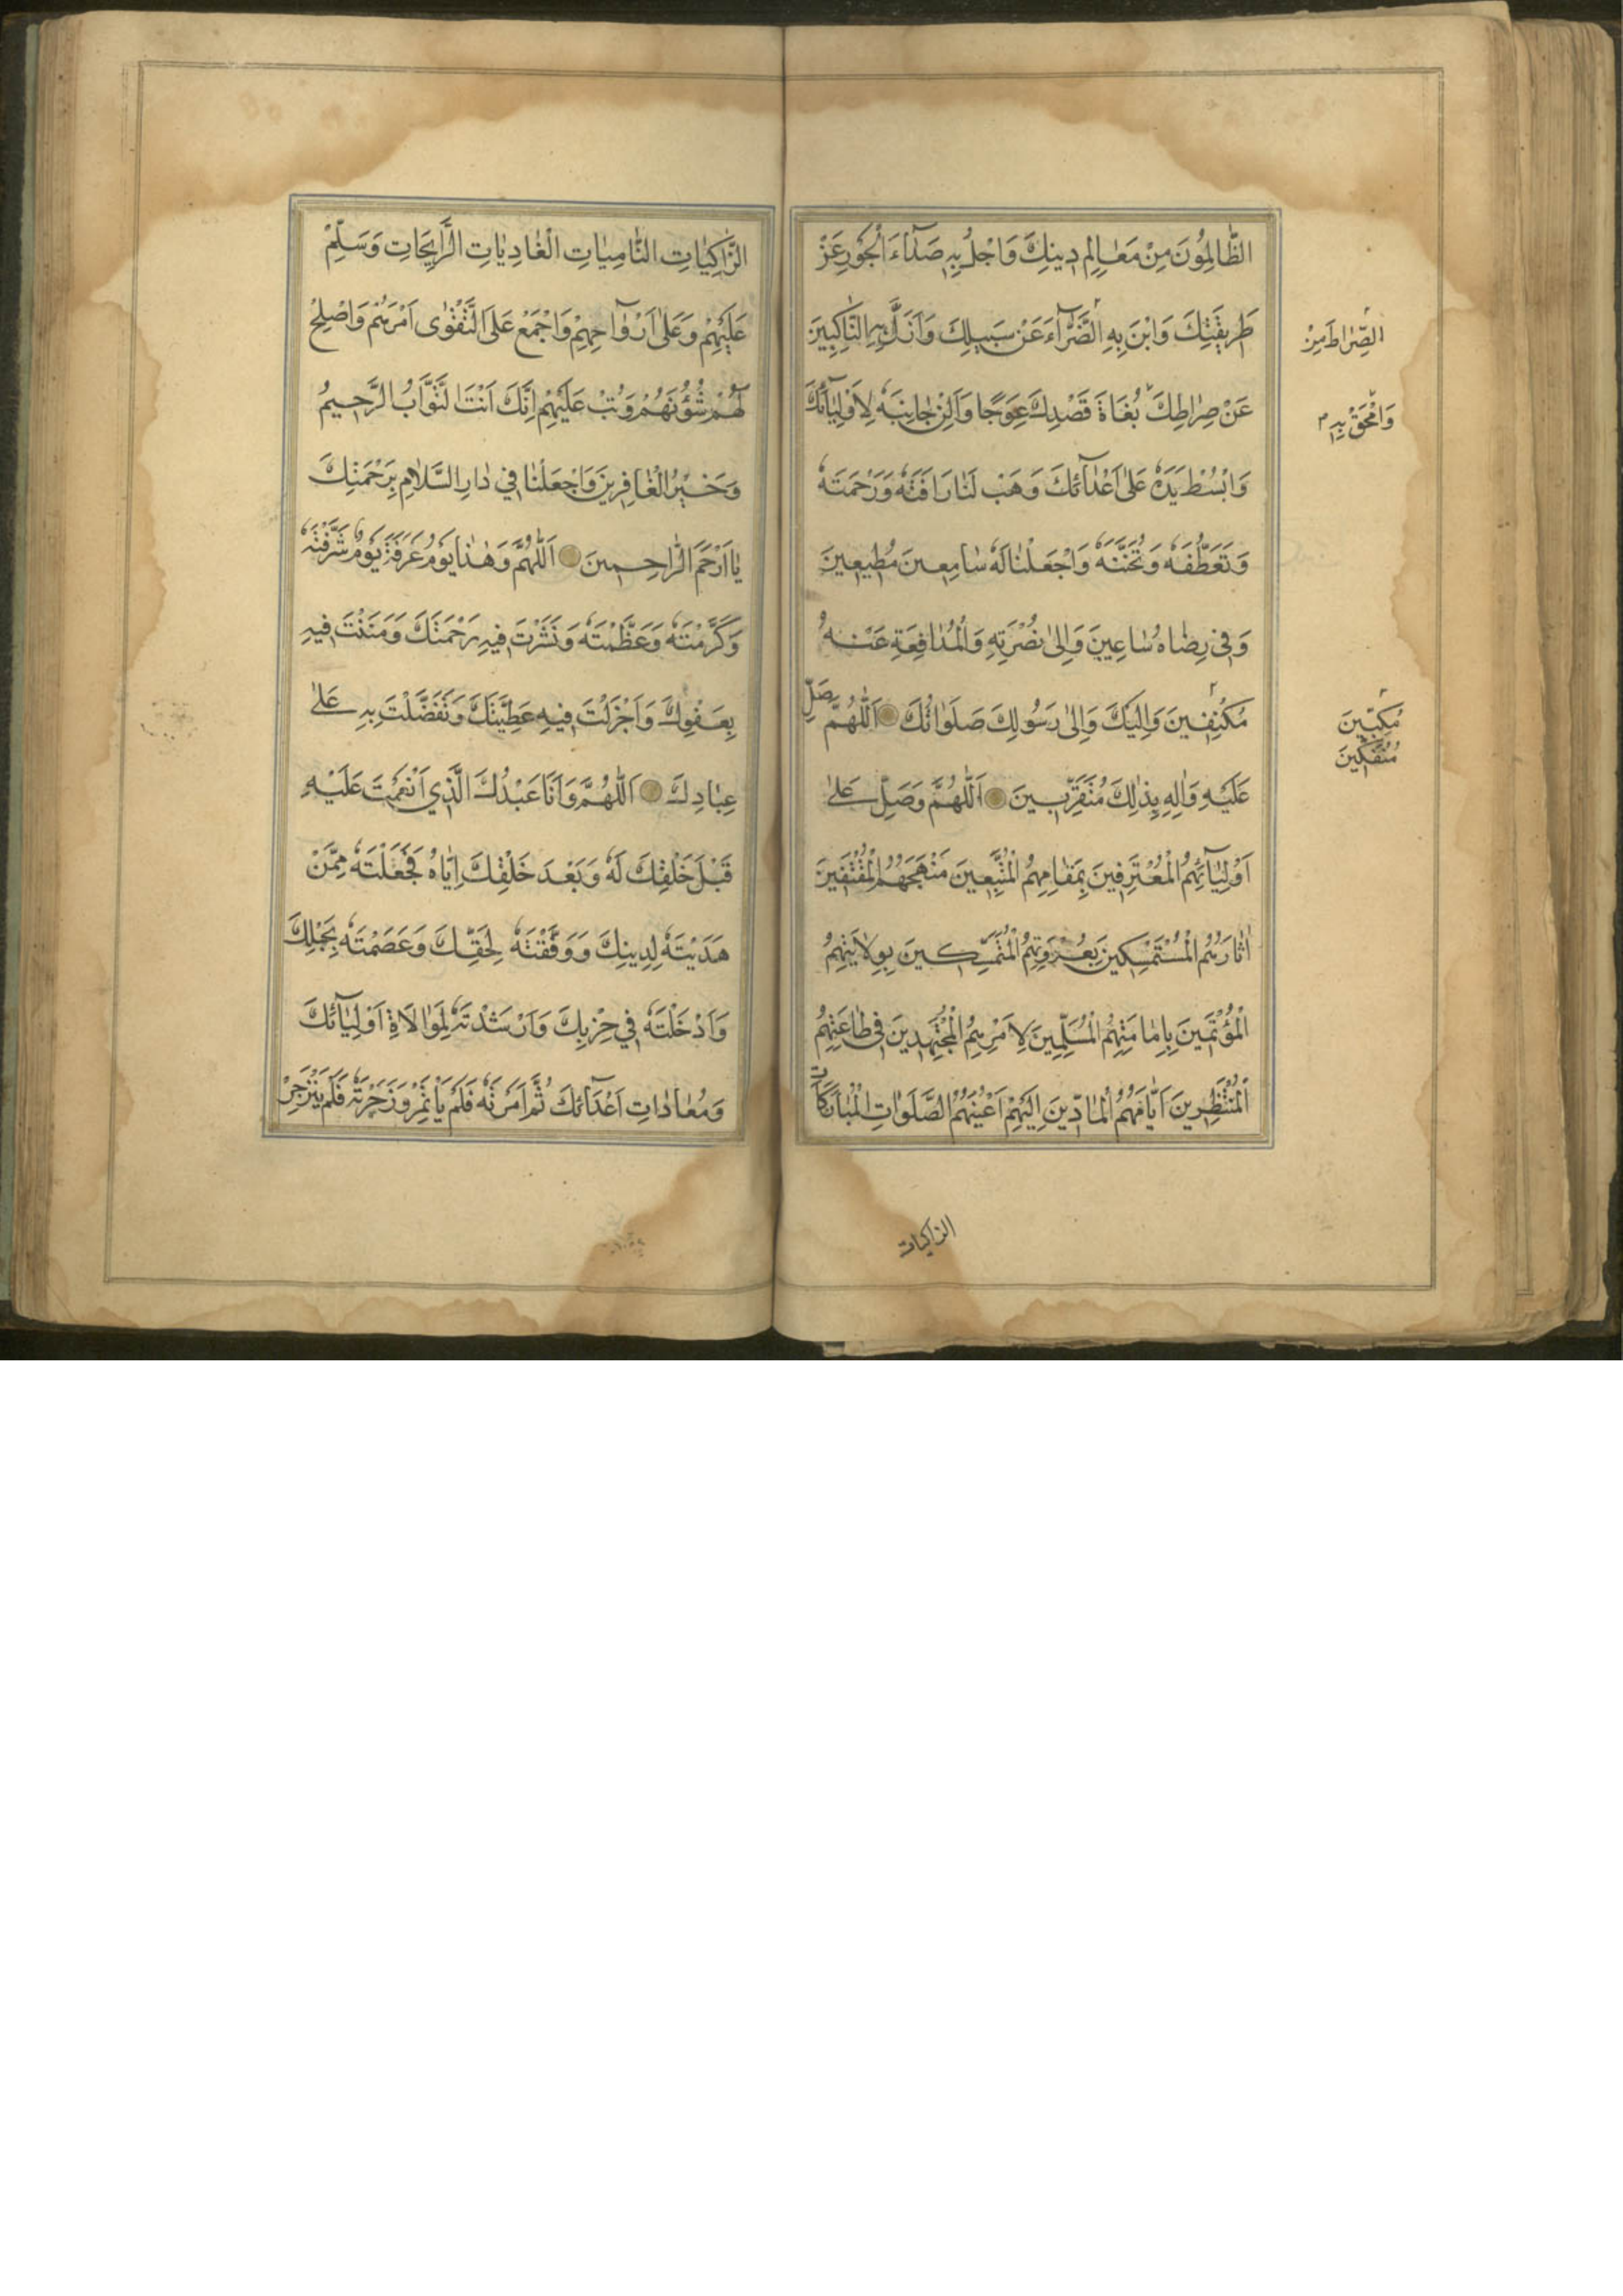 الظَّالِمُونَ مِنْ مَعَالِمِ دِينِكَ وَاجْلُ بِهِ صَدَآءَ الْجَوْرِ عَنْ
طَرِيقَتِكَ وَابْنِ بِهِ الضَّرَّآءَ عَنْ سَبِيلِكَ وَاَزِلْ بِهِ النَّاكِبِينَ
عَنْ صِرَاطِكَ بُغَاةَ قَصْدِكَ عِوَجًا وَاَلِنْ جَانِبَهُ لِاَوْلِيَآئِكَ
وَابْسُطْ يَدَهُ عَلٰى اَعْدَآئِكَ وَهَبْ لَنَا رَاْفَتَهُ وَرَحْمَتَهُ
وَتَعَطُّفَهُ وَتَحَنُّنَهُ وَاجْعَلْنَا لَهُ سَامِعِينَ مُطِيعِينَ
وَفِي رِضَاهُ سَاعِينَ وَاِلٰى نُصْرَتِهِ وَالْمُدَافَعَةِ عَنْهُ
مُكْنِفِينَ وَاِلَيْكَ وَاِلٰى رَسُولِكَ صَلَوَاتُكَ اَللّٰهُمَّ صَلِّ
عَلَيْهِ وَاٰلِهِ بِذٰلِكَ مُتَقَرِّبِينَ اَللّٰهُمَّ وَصَلِّ عَلٰى
اَوْلِيَآئِهِمُ الْمُعْتَرِفِينَ بِمَقَامِهِمُ الْمُتَّبِعِينَ مَنْهَجَهُمُ الْمُقْتَفِينَ
اٰثَارَهُمُ الْمُسْتَمْسِكِينَ بِعُرْوَتِهِمُ الْمُتَمَسِّكِينَ بِوِلَايَتِهِمُ
الْمُؤْتَمِّينَ بِاِمَامَتِهِمُ الْمُسَلِّمِينَ لِاَمْرِهِمُ الْمُجْتَهِدِينَ فِي طَاعَتِهِمُ
الْمُنْتَظِرِينَ اَيَّامَهُمُ الْمَادِّينَ اِلَيْهِمْ اَعْيُنَهُمُ الصَّلَوَاتِ الْمُبَارَكَاتِ
الصِّرَاطَ مِنْ
وَامْحَقْ بِهِ
مُكِبِّينَ
مُنْفَكِّينَ
الزاكيات
الزَّاكِيَاتِ النَّامِيَاتِ الْغَادِيَاتِ الرَّايِحَاتِ وَسَلِّمْ
عَلَيْهِمْ وَعَلٰى اَرْوَاحِهِمْ وَاجْمَعْ عَلَى التَّقْوٰى اَمْرَهُمْ وَاصْلِحْ
لَهُمْ شُؤُنَهُمْ وَتُبْ عَلَيْهِمْ اِنَّكَ اَنْتَ التَّوَّابُ الرَّحِيمُ
وَخَيْرُ الْغَافِرِينَ وَاجْعَلْنَا فِي دَارِ السَّلَامِ بِرَحْمَتِكَ
يَا اَرْحَمَ الرَّاحِمِينَ اَللّٰهُمَّ وَهٰذَا يَوْمُ عَرَفَةَ يَوْمٌ شَرَّفْتَهُ
وَكَرَّمْتَهُ وَعَظَّمْتَهُ وَنَشَرْتَ فِيهِ رَحْمَتَكَ وَمَنَنْتَ فِيهِ
بِعَفْوِكَ وَاَجْزَلْتَ فِيهِ عَطِيَّتَكَ وَتَفَضَّلْتَ بِهِ عَلٰى
عِبَادِكَ اَللّٰهُمَّ وَاَنَا عَبْدُكَ الَّذِي اَنْعَمْتَ عَلَيْهِ
قَبْلَ خَلْقِكَ لَهُ وَبَعْدَ خَلْقِكَ اِيَّاهُ فَجَعَلْتَهُ مِمَّنْ
هَدَيْتَهُ لِدِينِكَ وَوَفَّقْتَهُ لِحَقِّكَ وَعَصَمْتَهُ بِحَبْلِكَ
وَاَدْخَلْتَهُ فِي حِزْبِكَ وَاَرْشَدْتَهُ لِمُوَالَاةِ اَوْلِيَآئِكَ
وَمُعَادَاتِ اَعْدَآئِكَ ثُمَّ اَمَرْتَهُ فَلَمْ يَاْتَمِرْ وَزَجَرْتَهُ فَلَمْ يَنْزَجِرْ